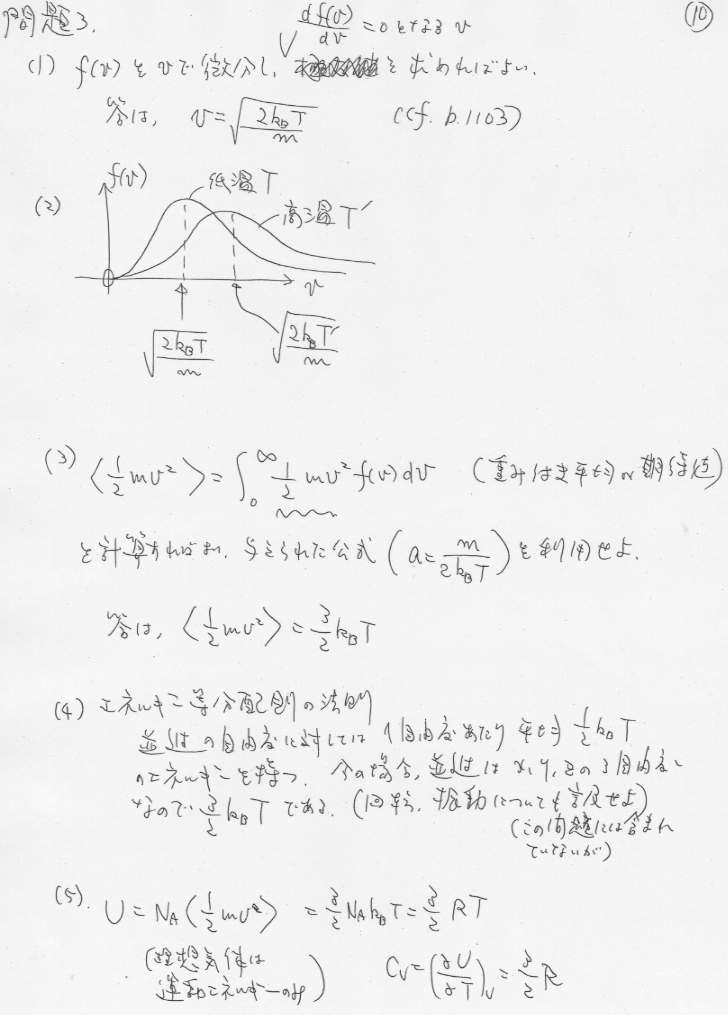 問題3.
⑩
(1) f(v)をvで微分し, df(v)/dv = 0となるv を求めればよい.
答は, v = √(2k_BT/m) (cf. p.1103)
(2)
f(v)
低温T
高温T′
v
√(2k_BT/m) √(2k_BT′/m)
(3) ⟨1/2 mv²⟩ = ∫₀^∞ 1/2 mv² f(v)dv (重みつき平均 or 期待値)
と計算すればよい. 与えられた公式 (a = m/2k_BT) を利用せよ.
答は, ⟨1/2 mv²⟩ = 3/2 k_BT
(4) エネルギー等分配則の法則
並進の自由度に対しては1自由度あたり平均 1/2 k_BT
のエネルギーを持つ. 今の場合, 並進はx, y, zの3自由度
なので, 3/2 k_BT である. (回転, 振動についても言及せよ)
(この問題には含まれ
ていないが)
(5). U = N_A⟨1/2 mv²⟩ = 3/2 N_A k_BT = 3/2 RT
(理想気体は
運動エネルギーのみ)
C_V = (∂U/∂T)_V = 3/2 R